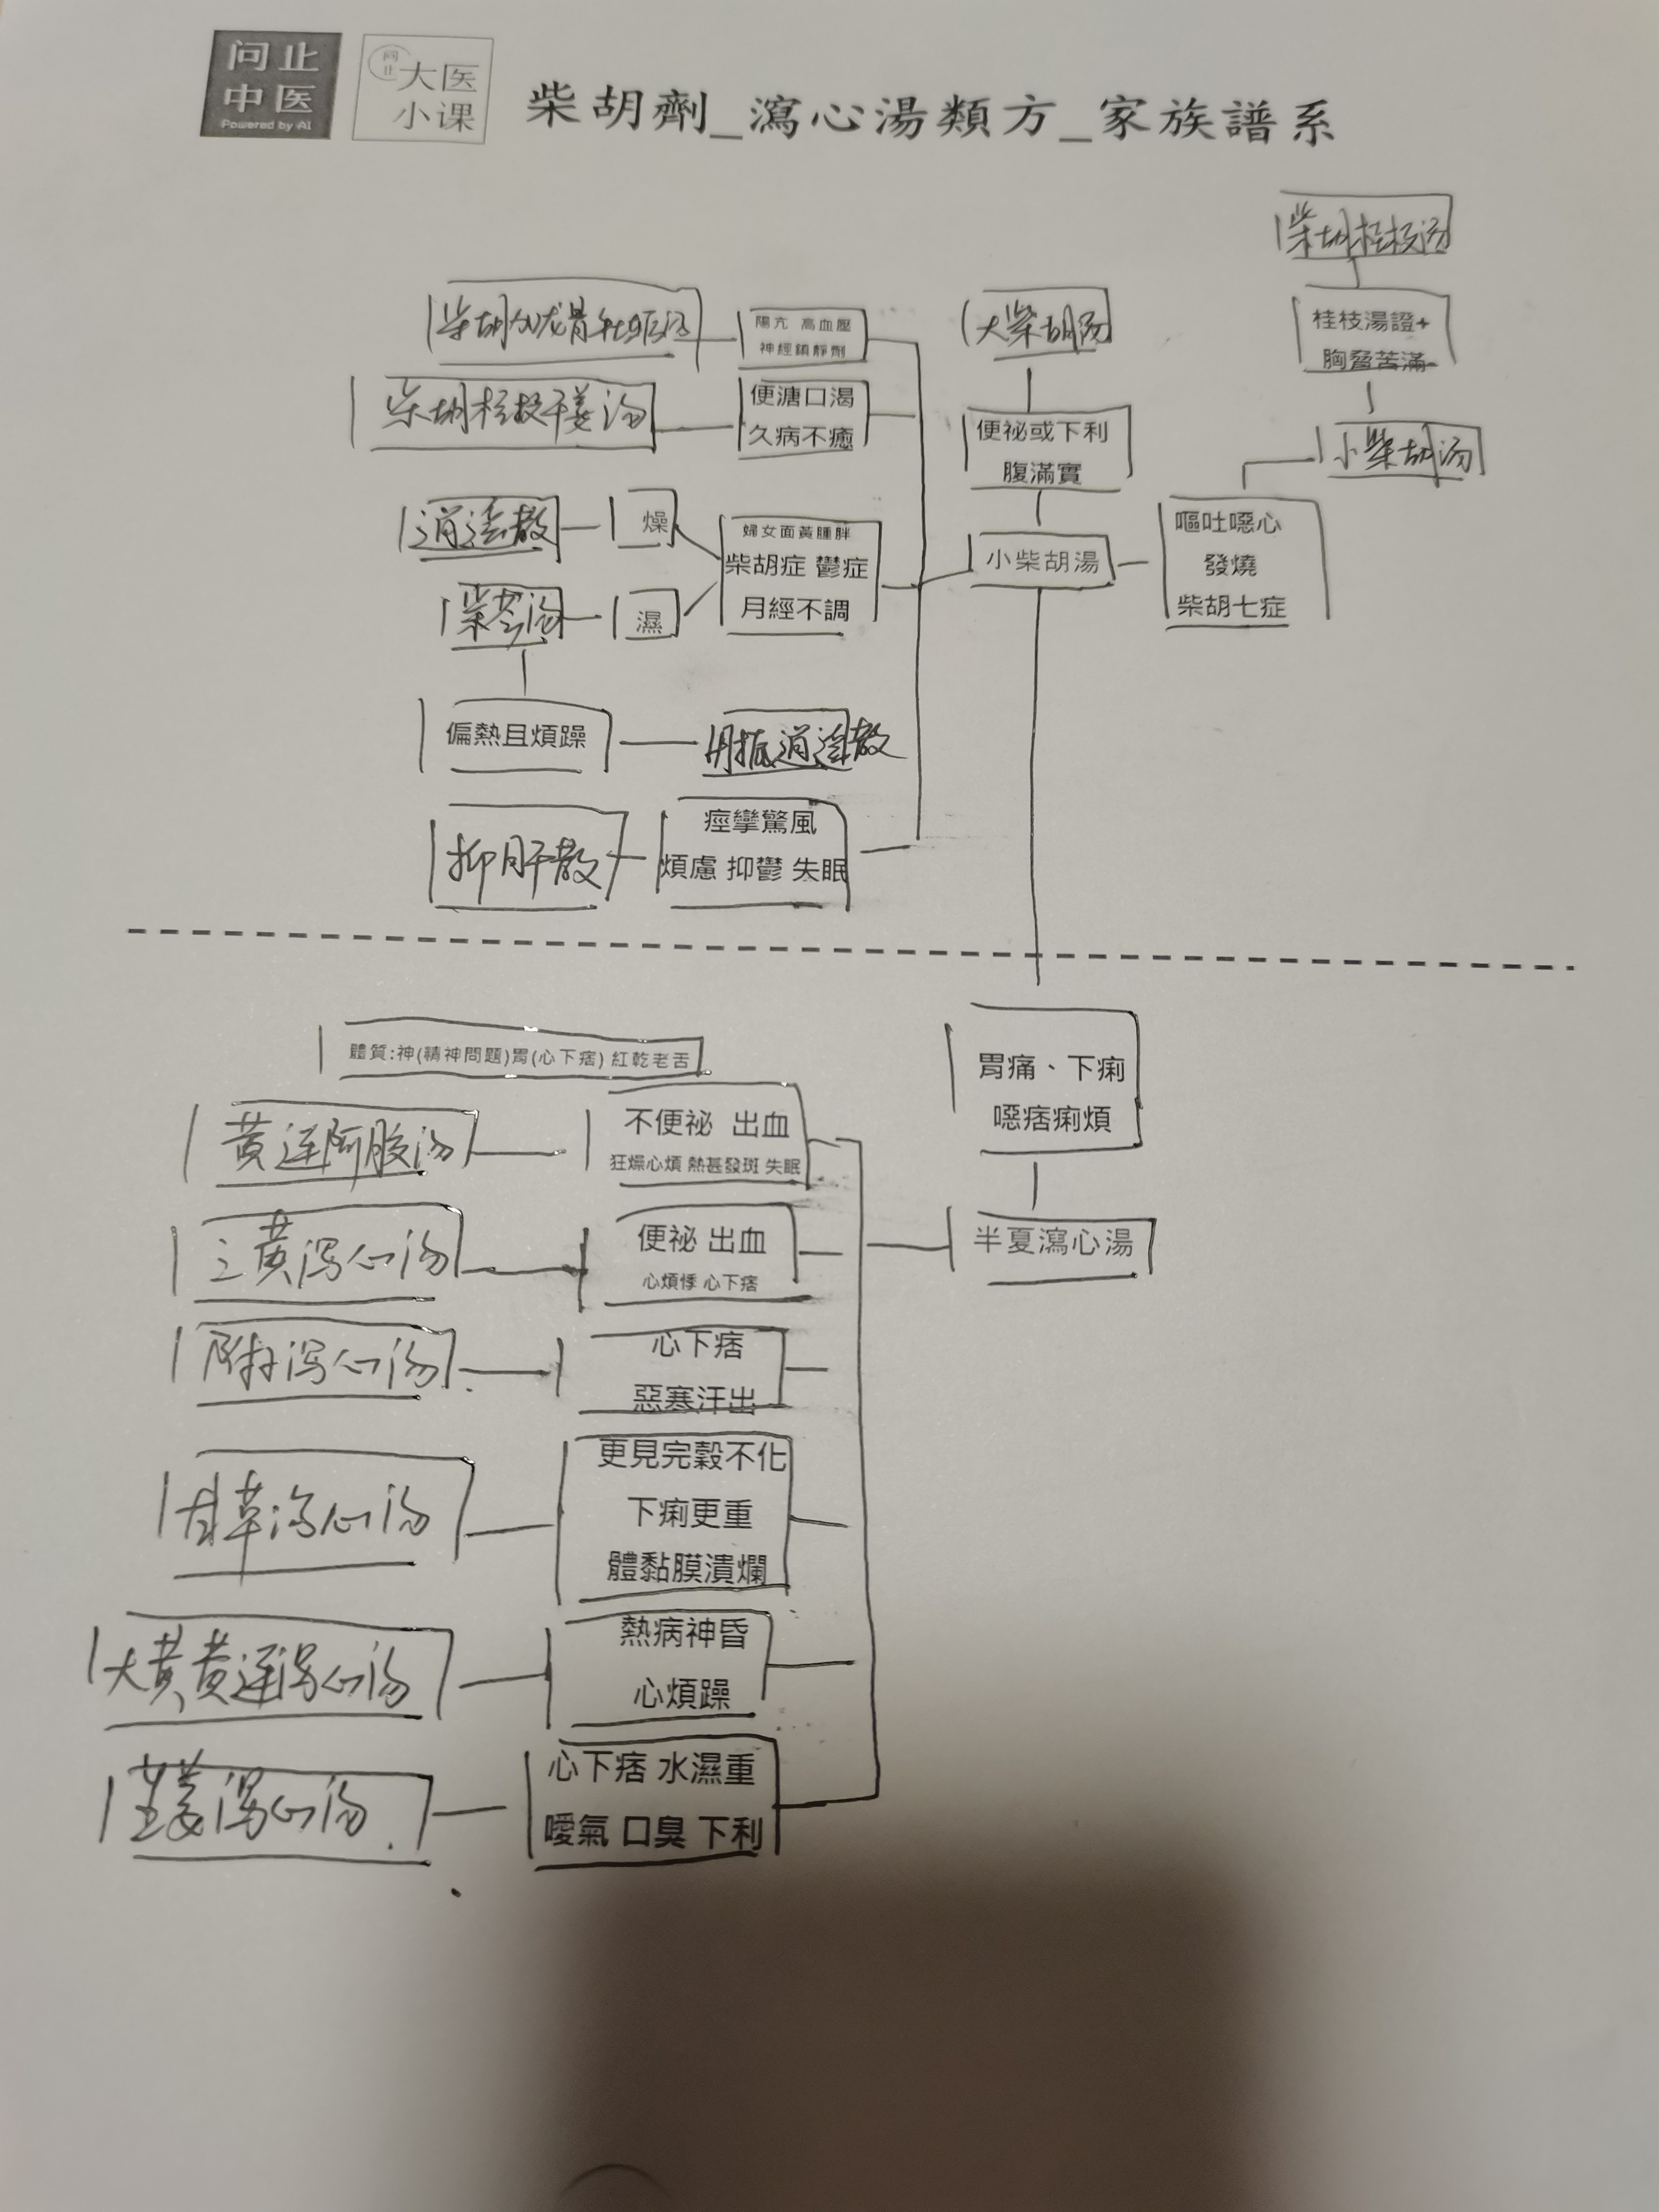 问止
中医
Powered by AI
问止
大医
小课
柴胡劑_瀉心湯類方_家族譜系
柴胡桂枝汤
桂枝湯證+
胸脅苦滿
小柴胡汤
柴胡加龙骨牡蛎汤
陽亢 高血壓
神經鎮靜劑
大柴胡汤
柴胡桂枝干姜汤
便溏口渴
久病不癒
便祕或下利
腹滿實
逍遥散
燥
婦女面黃腫胖
柴胡症 鬱症
月經不調
小柴胡湯
嘔吐噁心
發燒
柴胡七症
柴苓汤
濕
偏熱且煩躁
逍遥散
抑肝散
痙攣驚風
煩慮 抑鬱 失眠
體質:神(精神問題)胃(心下痞) 紅乾老舌
胃痛、下痢
噁痞痢煩
黄连阿胶汤
不便祕 出血
狂燥心煩 熱甚發斑 失眠
三黄泻心汤
便祕 出血
心煩悸 心下痞
半夏瀉心湯
附子泻心汤
心下痞
惡寒汗出
甘草泻心汤
更見完穀不化
下痢更重
體黏膜潰爛
大黄黄连泻心汤
熱病神昏
心煩躁
生姜泻心汤
心下痞 水濕重
噯氣 口臭 下利